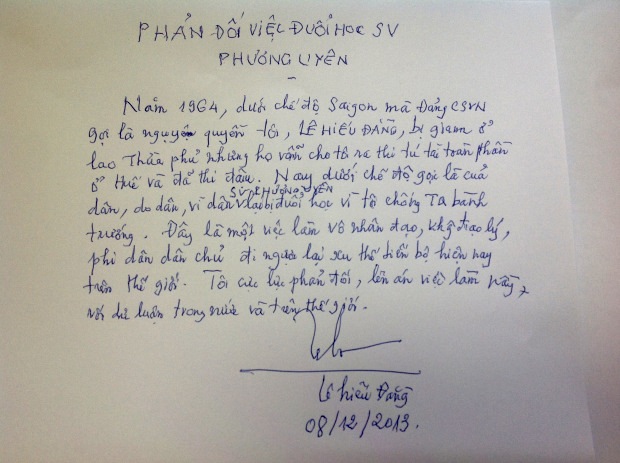 PHẢN ĐỐI VIỆC ĐUỔI HỌC SV
PHƯƠNG UYÊN
Năm 1964, dưới chế độ Saigon mà Đảng CSVN
gọi là ngụy quyền tôi, LÊ HIẾU ĐẰNG, bị giam ở
lao Thừa phủ nhưng họ vẫn cho tôi ra thi tú tài toàn phần
ở Huế và đã thi đậu. Nay dưới chế độ gọi là của
SV PHƯƠNG UYÊN
dân, do dân, vì dân lại bị đuổi học vì tội chống Tàu bành
trướng. Đây là một việc làm vô nhân đạo, không đạo lý,
phi dân chủ đi ngược lại xu thế tiến bộ hiện nay
trên thế giới. Tôi cực lực phản đối, lên án việc làm này
với dư luận trong nước và trên thế giới.
Lê Hiếu Đằng
08/12/2013.